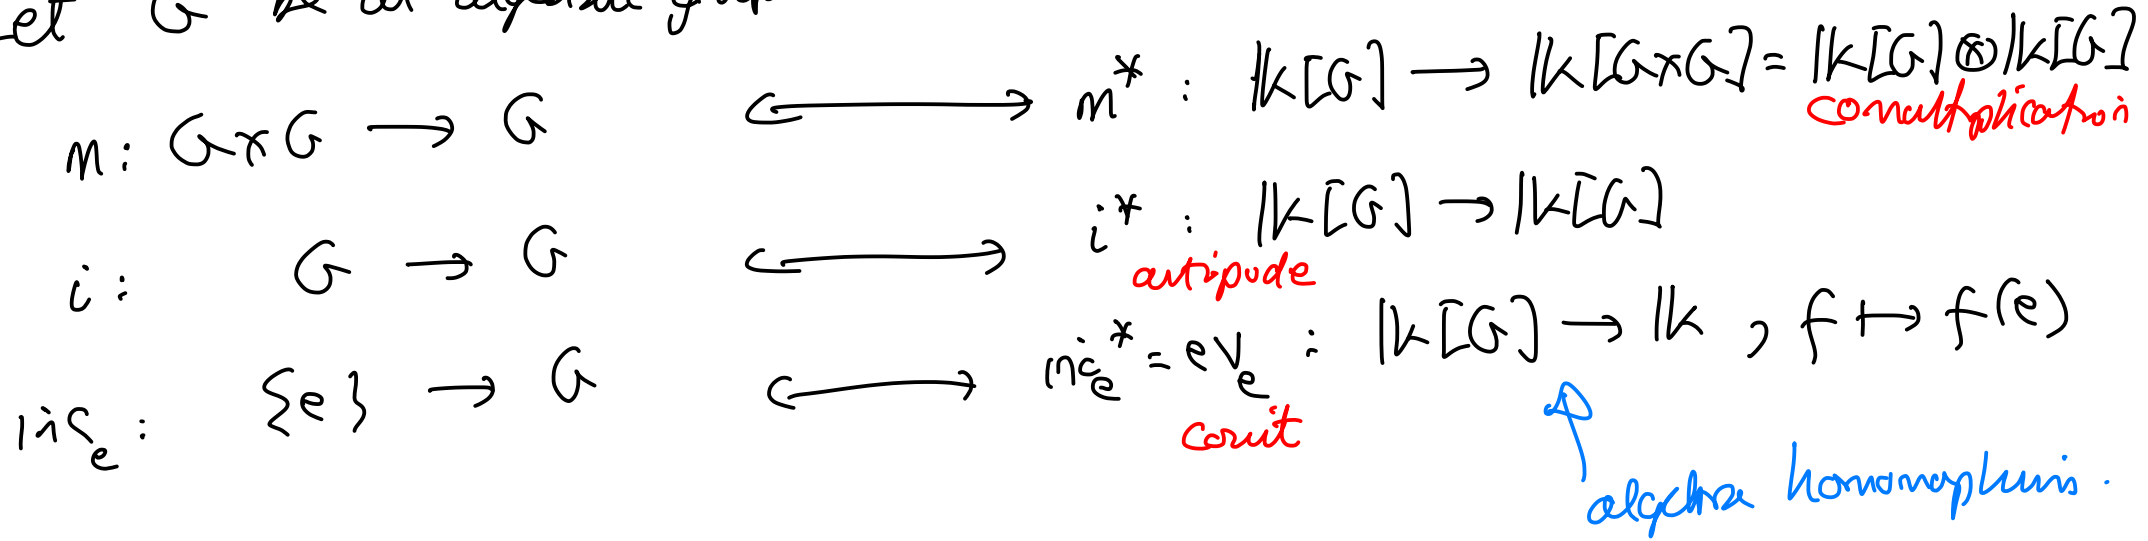 et G be an algebraic group
m: G×G → G ⟷ m* : 𝕜[G] → 𝕜[G×G] = 𝕜[G] ⊗ 𝕜[G]
comultiplication
i: G → G ⟷ i* : 𝕜[G] → 𝕜[G]
antipode
inc_e : {e} → G ⟷ inc_e* = ev_e : 𝕜[G] → 𝕜 , f ↦ f(e)
counit
algebra homomorphisms.